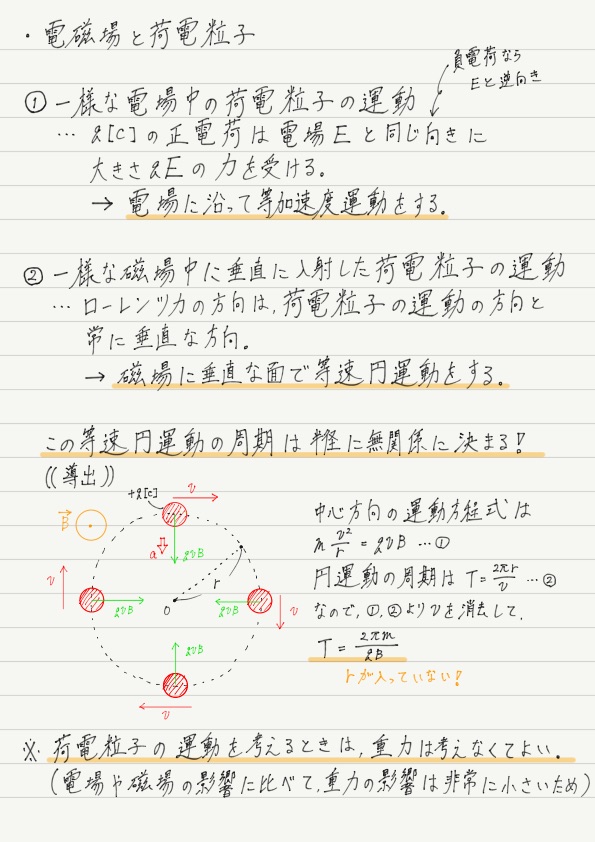 ・電磁場と荷電粒子
負電荷なら
Eと逆向き
① 一様な電場中の荷電粒子の運動
… q[C]の正電荷は電場Eと同じ向きに
大きさqEの力を受ける。
→ 電場に沿って等加速度運動をする。
② 一様な磁場中に垂直に入射した荷電粒子の運動
… ローレンツ力の方向は、荷電粒子の運動の方向と
常に垂直な方向。
→ 磁場に垂直な面で等速円運動をする。
この等速円運動の周期は半径に無関係に決まる!
((導出))
+q[C]
v
B
a
qvB
r
v
qvB
O
qvB
v
qvB
v
中心方向の運動方程式は
m v²/r = qvB …①
円運動の周期は T = 2πr/v …②
なので、①,②よりvを消去して、
T = 2πm/qB
rが入っていない!
※ 荷電粒子の運動を考えるときは、重力は考えなくてよい。
(電場や磁場の影響に比べて、重力の影響は非常に小さいため)